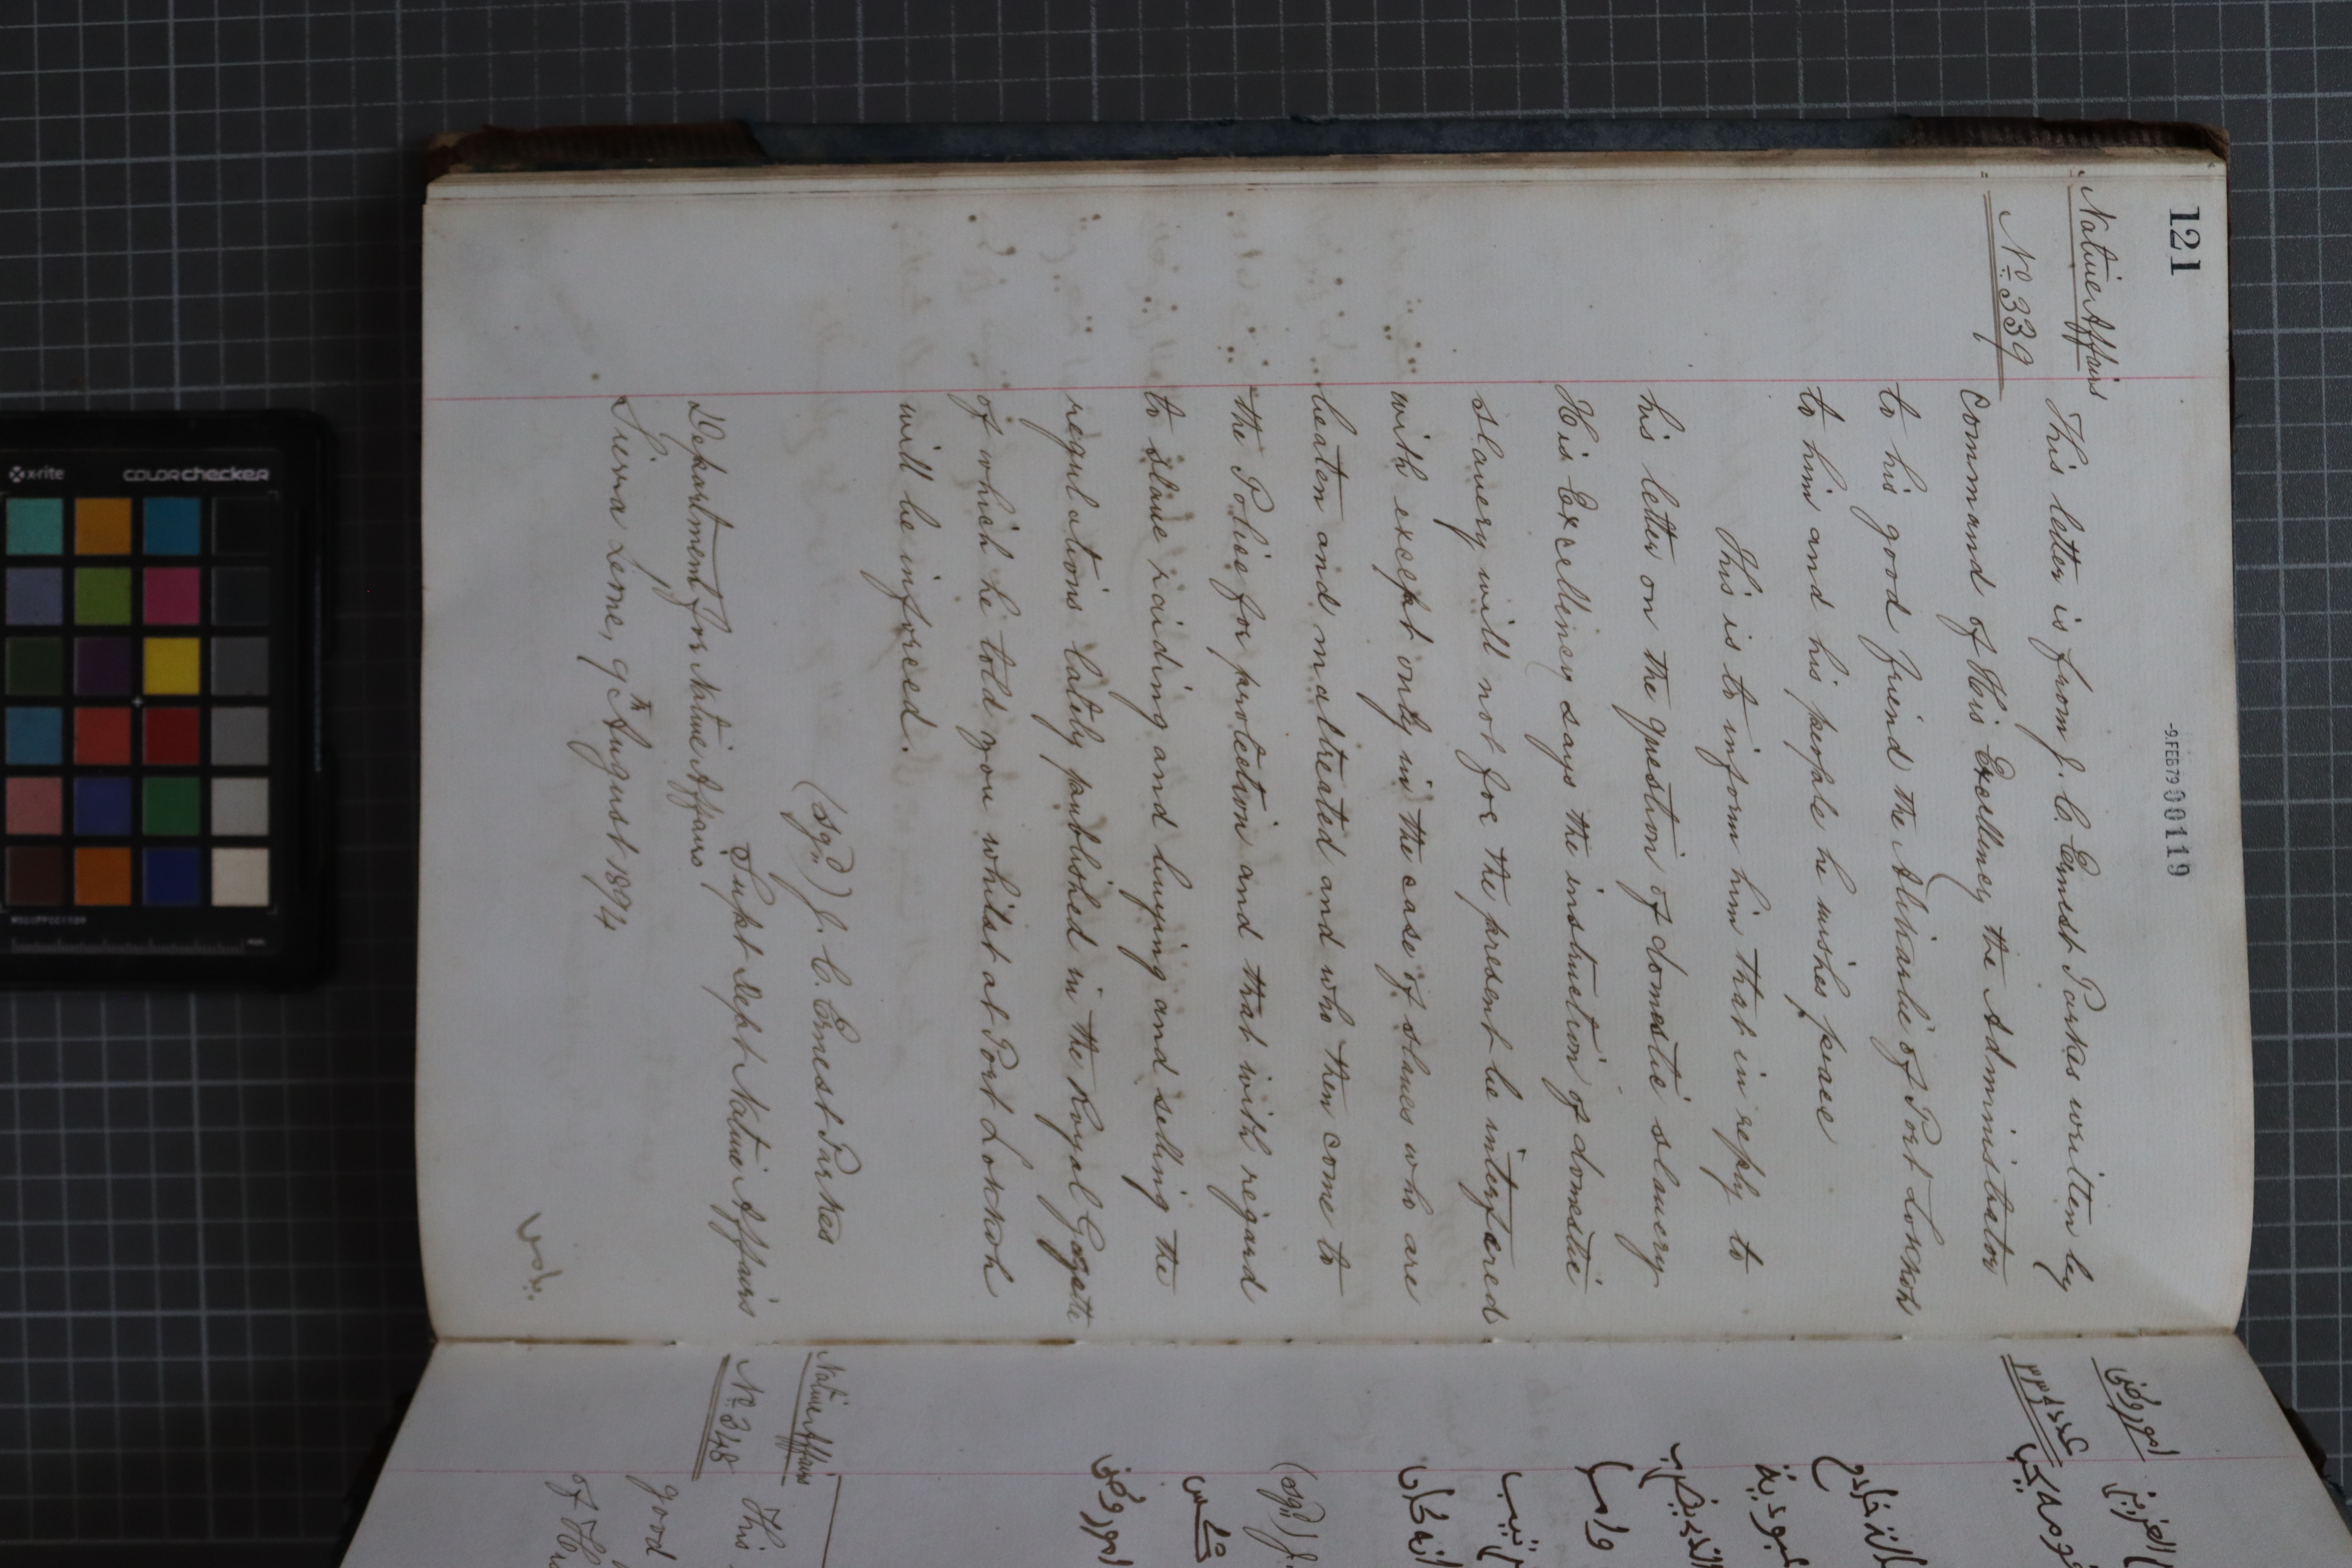 121
-9.FEB79 00119
Native Affairs
No. 339
This letter is from J. C. Ernest Parkes written by
command of His Excellency the Administrator
to his good friend the Alikarlie of Port Lokkoh
to him and his people he wishes peace
This is to inform him that in reply to
his letter on the question of domestic slavery
His Excellency says the institution of domestic
slavery will not for the present be interfered
with except only in the case of slaves who are
beaten and maltreated and who then come to
the Police for protection and that with regard
to slave raiding and buying and selling the
regulations lately published in the Royal Gazette
of which he told you whilst at Port Lokkoh
will be inforced.
(sgd) J. C. Ernest Parkes
Supt Dept Native Affairs
Department for Native Affairs
Sierra Leone, 9th August 1894
Native Affairs
No. 348
This
good
of His
(sgd) J.
x-rite
colorchecker